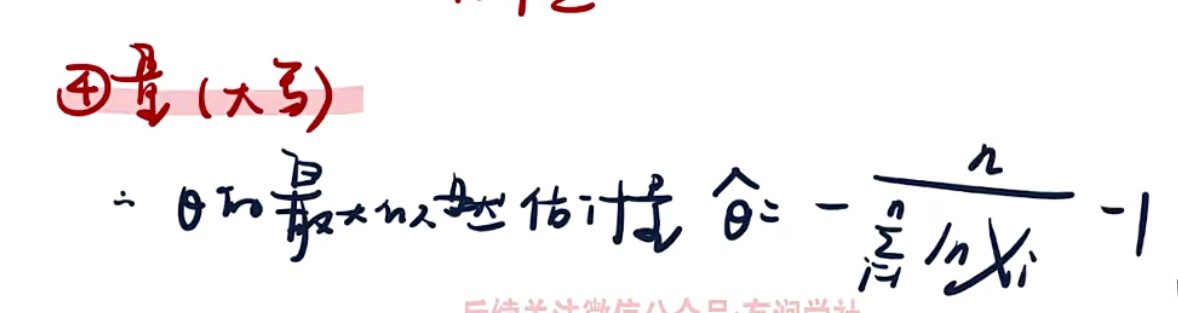 ④量(大写)
∴ θ的最大似然估计量 θ̂ = - n / ∑_{i=1}^{n} ln X_i - 1
后续关注微信公众号:有润学社